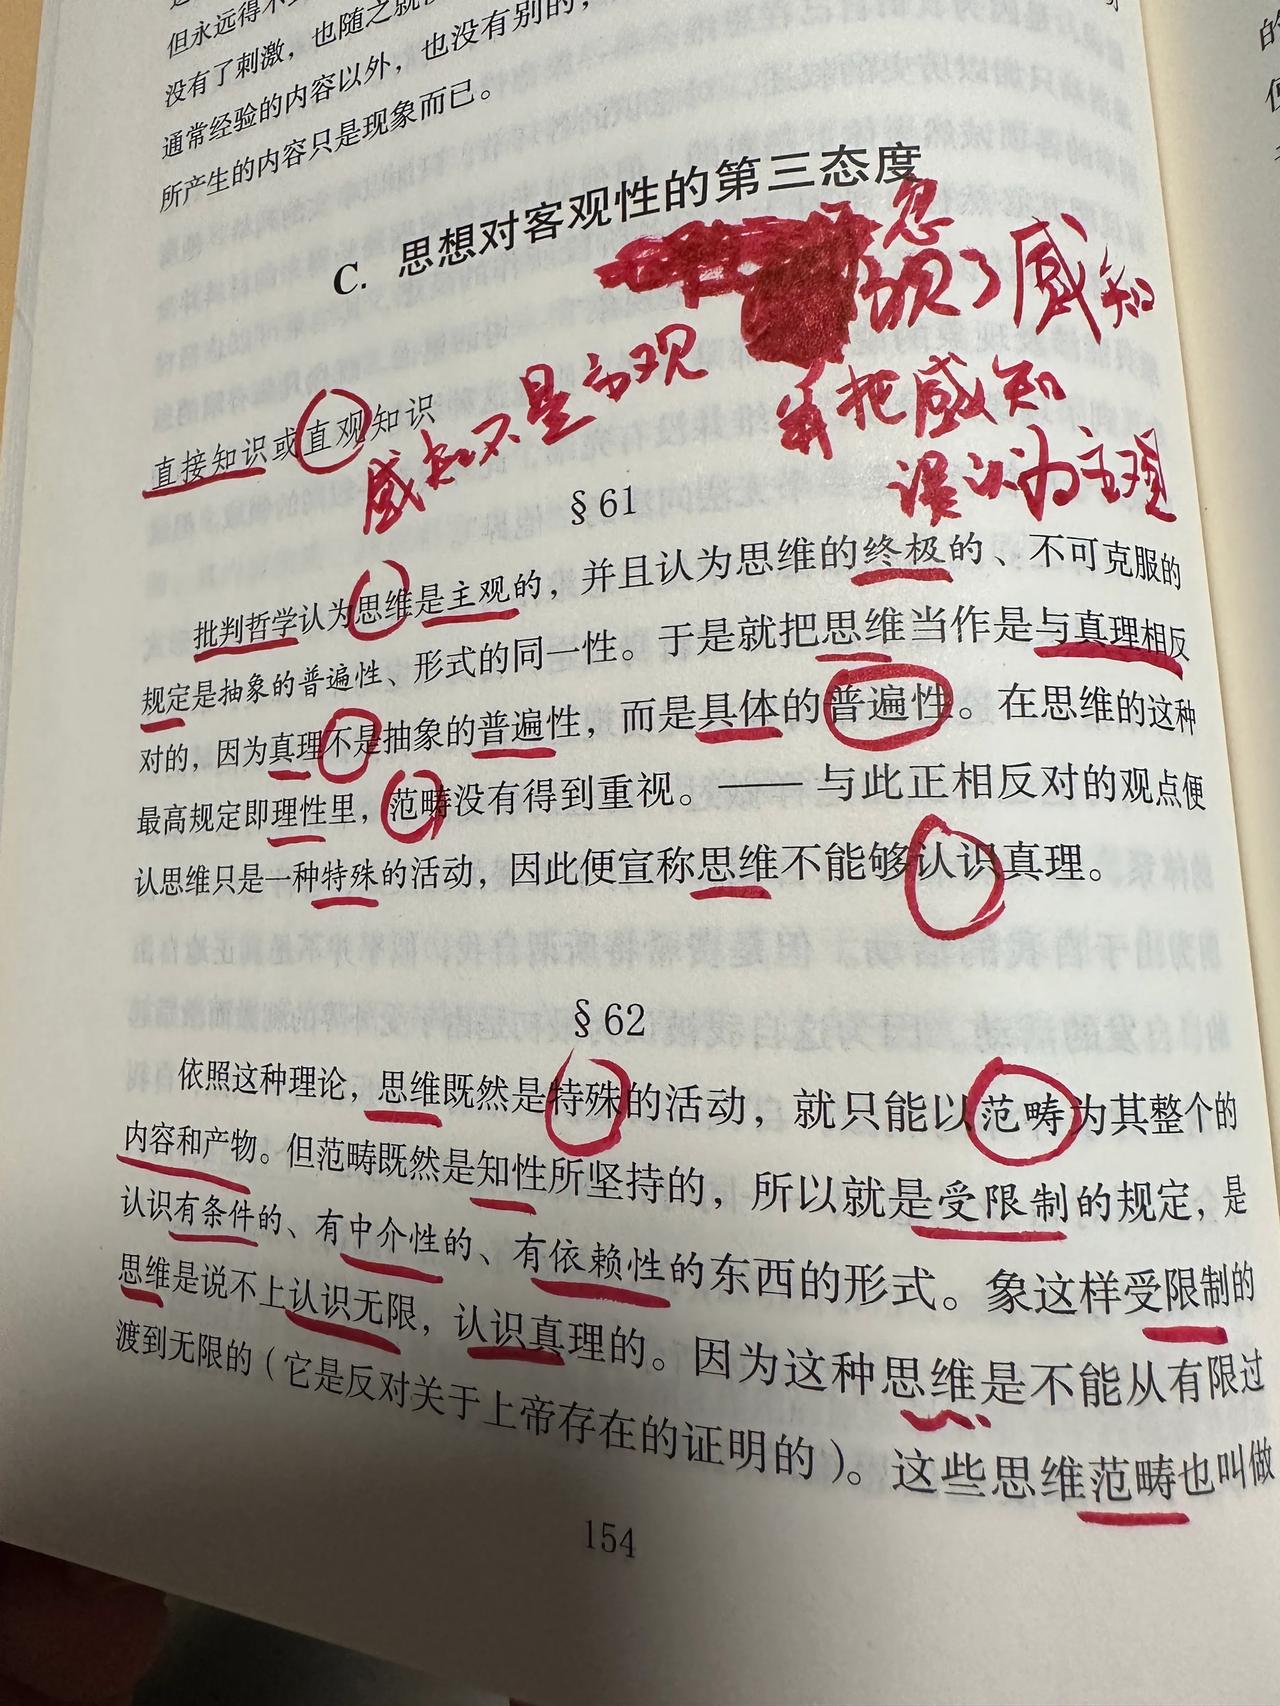 但永远得不
没有了刺激，也随之就
通常经验的内容以外，也没有别的，
所产生的内容只是现象而已。
C. 思想对客观性的第三态度
忽
视了感知
并把感知
误认为主观
感知不是主观
直接知识或直观知识
§ 61
批判哲学认为思维是主观的，并且认为思维的终极的、不可克服的
规定是抽象的普遍性、形式的同一性。于是就把思维当作是与真理相反
对的，因为真理不是抽象的普遍性，而是具体的普遍性。在思维的这种
最高规定即理性里，范畴没有得到重视。—— 与此正相反对的观点便
认思维只是一种特殊的活动，因此便宣称思维不能够认识真理。
§ 62
依照这种理论，思维既然是特殊的活动，就只能以范畴为其整个的
内容和产物。但范畴既然是知性所坚持的，所以就是受限制的规定，是
认识有条件的、有中介性的、有依赖性的东西的形式。象这样受限制的
思维是说不上认识无限，认识真理的。因为这种思维是不能从有限过
渡到无限的（它是反对关于上帝存在的证明的）。这些思维范畴也叫做
154